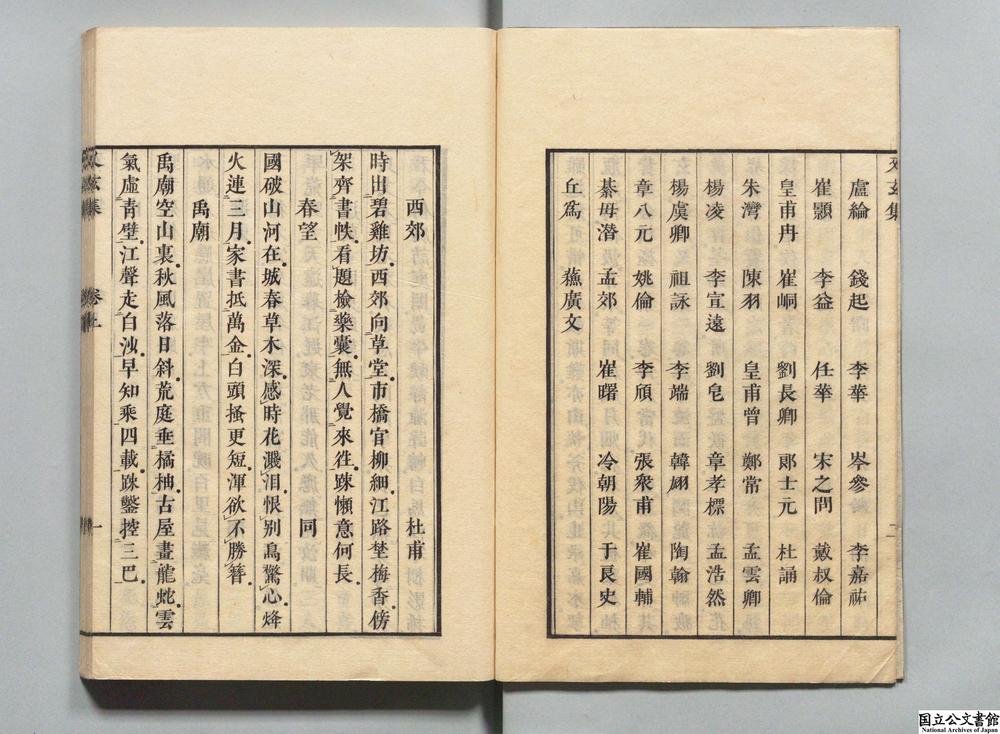 又玄集
二
盧綸 錢起 李華 岑參 李嘉祐
崔顥 李益 任華 宋之問 戴叔倫
皇甫冉 崔峒 劉長卿 郎士元 杜誦
朱灣 陳羽 皇甫曾 鄭常 孟雲卿
楊凌 李宣遠 劉皂 章孝標 孟浩然
楊虞卿 祖詠 李端 韓翃 陶翰
章八元 姚倫 李頎 張衆甫 崔國輔
綦毋潛 孟郊 崔曙 冷朝陽 于良史
丘爲 蕪廣文
西郊 杜甫
時出碧雞坊西郊向草堂市橋官柳細江路埜梅香傍
架齊書帙看題檢藥囊無人覺來徃踈懶意何長
春望 同
國破山河在城春草木深感時花濺泪恨别鳥驚心烽
火連三月家書抵萬金白頭搔更短渾欲不勝簪
禹廟
禹廟空山裏秋風落日斜荒庭垂橘柚古屋畫龍蛇雲
氣虛青壁江聲走白沙早知乘四載踈鑿控三巴
又玄集 卷上 一
国立公文書館
National Archives of Japan